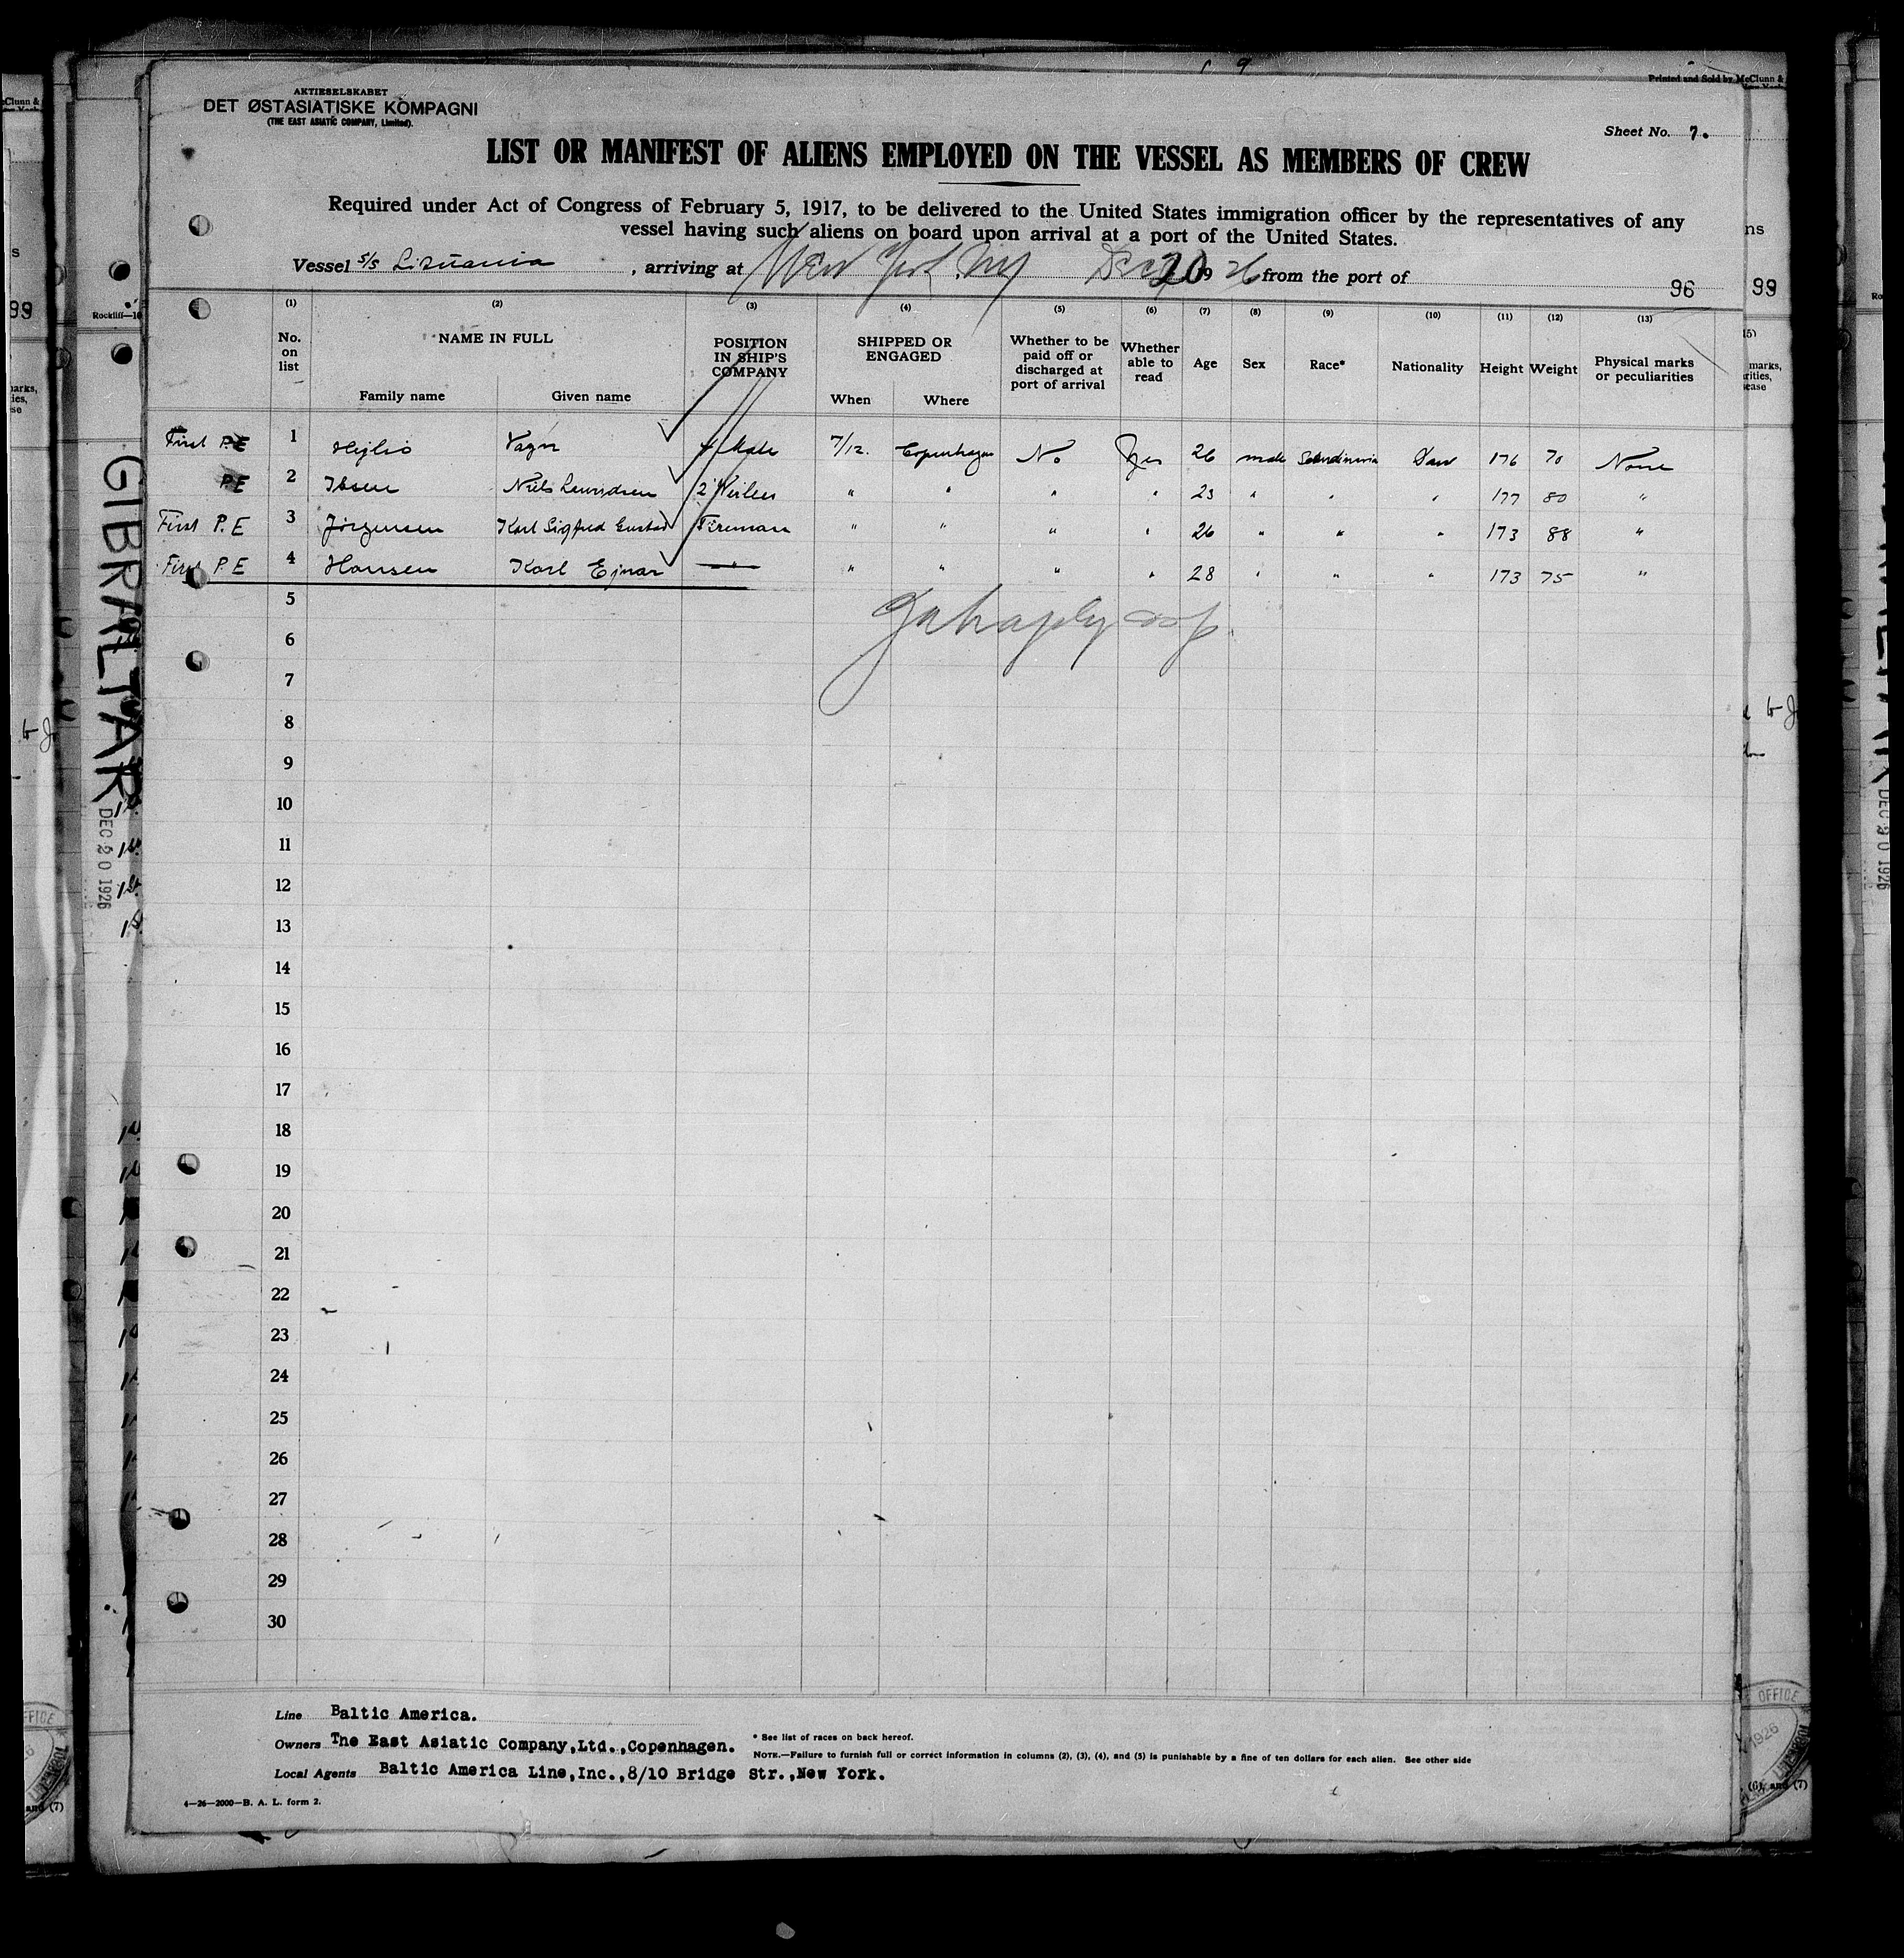 AKTIESELSKABET
DET ØSTASIATISKE KOMPAGNI
(THE EAST ASIATIC COMPANY, Limited).
Printed and Sold by McClunn &
Sheet No. 7.
LIST OR MANIFEST OF ALIENS EMPLOYED ON THE VESSEL AS MEMBERS OF CREW
Required under Act of Congress of February 5, 1917, to be delivered to the United States immigration officer by the representatives of any
vessel having such aliens on board upon arrival at a port of the United States.
Vessel S/S Lituania, arriving at New York, NY Dec 20 1926 from the port of
96 99
(1) (2) (3) (4) (5) (6) (7) (8) (9) (10) (11) (12) (13)
No. on list NAME IN FULL POSITION IN SHIP'S COMPANY SHIPPED OR ENGAGED Whether to be paid off or discharged at port of arrival Whether able to read Age Sex Race* Nationality Height Weight Physical marks or peculiarities
Family name Given name When Where
First P.E 1 Vagn 4 Mate 7/12. Copenhagen No Yes 26 male Scandinavia Dan 176 70 None
P.E 2 Ibsen Niels 2 " " " " 23 " " " 177 80 "
First P.E 3 Jörgensen Karl Sigfred Gustav Fireman " " " " 26 " " " 173 88 "
First P.E 4 Hansen Karl Ejnar —"— " " " " 28 " " " 173 75 "
5
6
7
8
9
10
11
12
13
14
15
16
17
18
19
20
21
22
23
24
25
26
27
28
29
30
GIBRALTAR
DEC 20 1926
Line Baltic America.
Owners The East Asiatic Company,Ltd.,Copenhagen.
* See list of races on back hereof.
NOTE.—Failure to furnish full or correct information in columns (2), (3), (4), and (5) is punishable by a fine of ten dollars for each alien. See other side
Local Agents Baltic America Line,Inc.,8/10 Bridge Str.,New York.
4—26—2000—B. A. L. form 2.